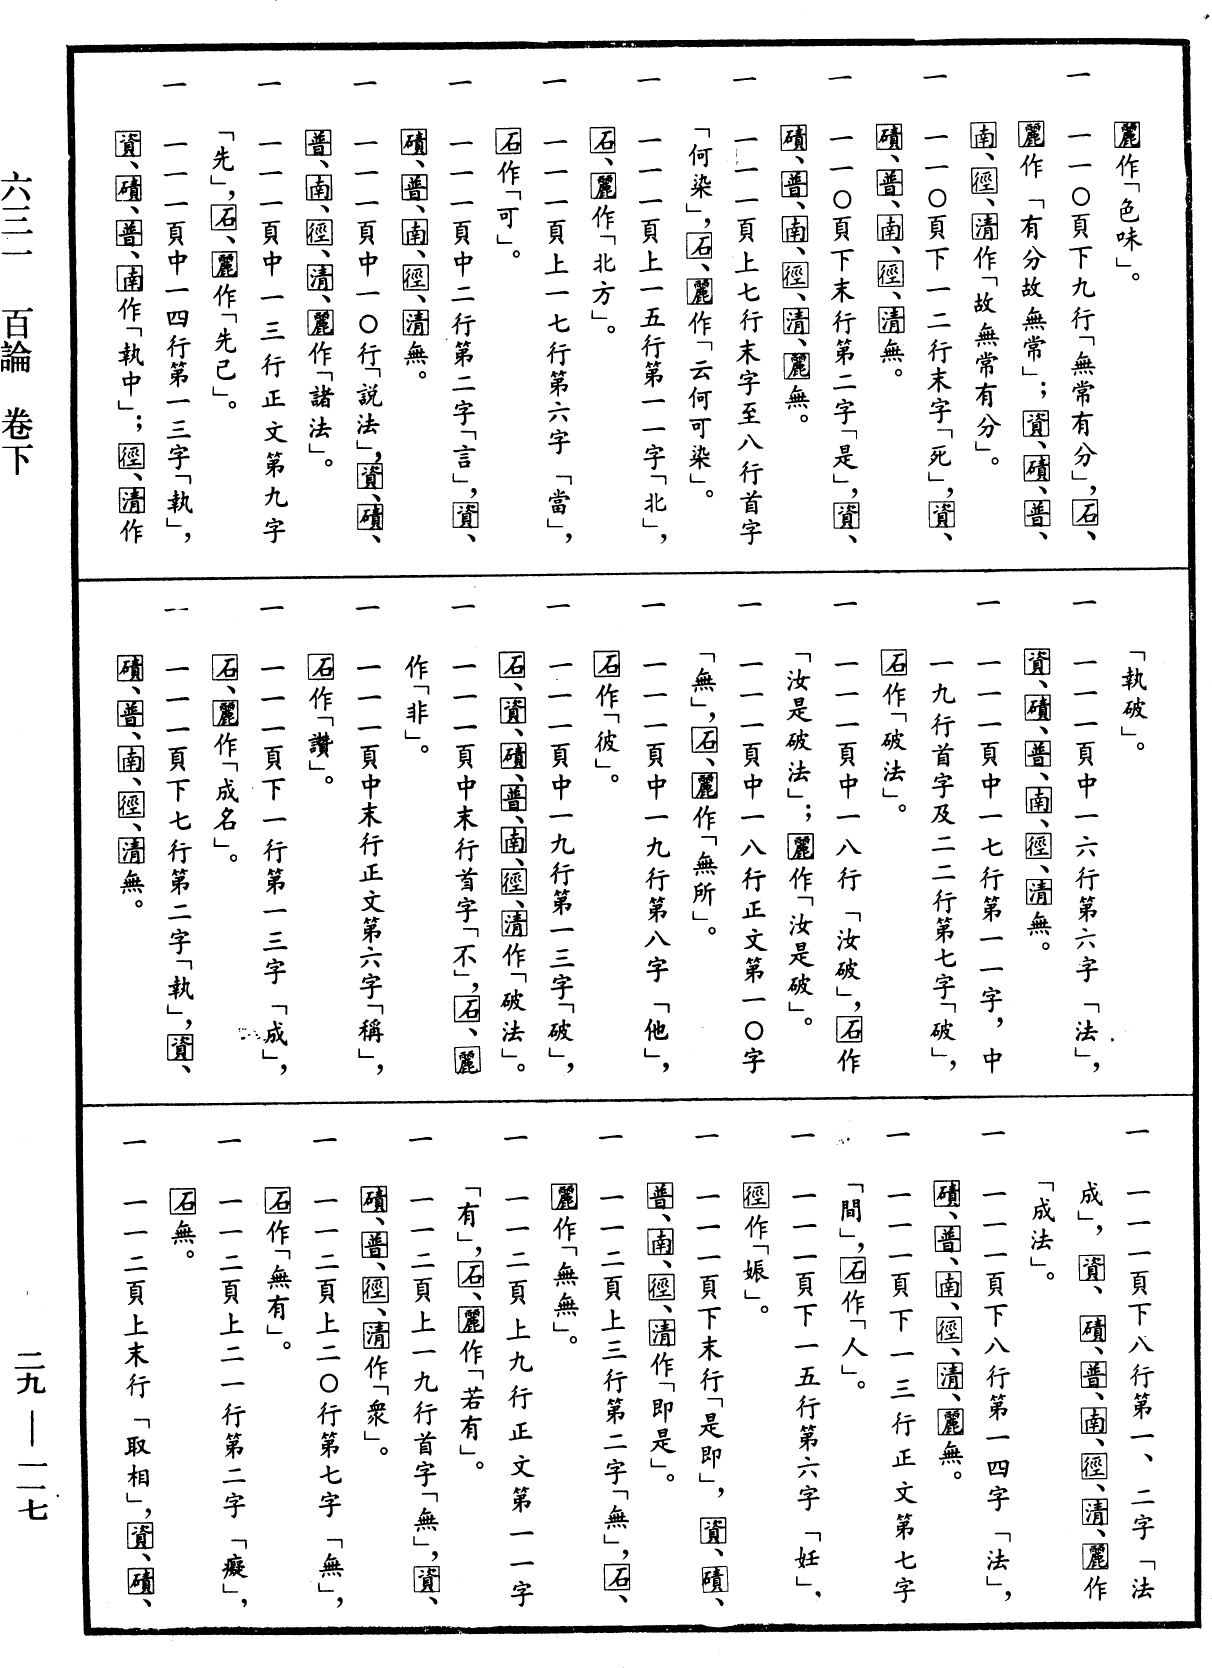 麗作「色味」。
一　一一〇頁下九行「無常有分」，石、
麗作「有分故無常」；資、磧、普、
南、徑、清作「故無常有分」。
一　一一〇頁下一二行末字「死」，資、
磧、普、南、徑、清無。
一　一一〇頁下末行第二字「是」，資、
磧、普、南、徑、清、麗無。
一　一一一頁上七行末字至八行首字
「何染」，石、麗作「云何可染」。
一　一一一頁上一五行第一一字「北」，
石、麗作「北方」。
一　一一一頁上一七行第六字「當」，
石作「可」。
一　一一一頁中二行第二字「言」，資、
磧、普、南、徑、清無。
一　一一一頁中一〇行「説法」，資、磧、
普、南、徑、清、麗作「諸法」。
一　一一一頁中一三行正文第九字
「先」，石、麗作「先已」。
一　一一一頁中一四行第一三字「執」，
資、磧、普、南作「執中」；徑、清作
「執破」。
一　一一一頁中一六行第六字「法」，
資、磧、普、南、徑、清無。
一　一一一頁中一七行第一一字，中
一九行首字及二二行第七字「破」，
石作「破法」。
一　一一一頁中一八行「汝破」，石作
「汝是破法」；麗作「汝是破」。
一　一一一頁中一八行正文第一〇字
「無」，石、麗作「無所」。
一　一一一頁中一九行第八字「他」，
石作「彼」。
一　一一一頁中一九行第一三字「破」，
石、資、磧、普、南、徑、清作「破法」。
一　一一一頁中末行首字「不」，石、麗
作「非」。
一　一一一頁中末行正文第六字「稱」，
石作「讚」。
一　一一一頁下一行第一三字「成」，
石、麗作「成名」。
一　一一一頁下七行第二字「執」，資、
磧、普、南、徑、清無。
一　一一一頁下八行第一、二字「法
成」，資、磧、普、南、徑、清、麗作
「成法」。
一　一一一頁下八行第一四字「法」，
磧、普、南、徑、清、麗無。
一　一一一頁下一三行正文第七字
「間」，石作「人」。
一　一一一頁下一五行第六字「妊」，
徑作「娠」。
一　一一一頁下末行「是即」，資、磧、
普、南、徑、清作「即是」。
一　一一二頁上三行第二字「無」，石、
麗作「無無」。
一　一一二頁上九行正文第一一字
「有」，石、麗作「若有」。
一　一一二頁上一九行首字「無」，資、
磧、普、徑、清作「衆」。
一　一一二頁上二〇行第七字「無」，
石作「無有」。
一　一一二頁上二一行第二字「癡」，
石無。
一　一一二頁上末行「取相」，資、磧、
六三一　百論　卷下
二九—一一七